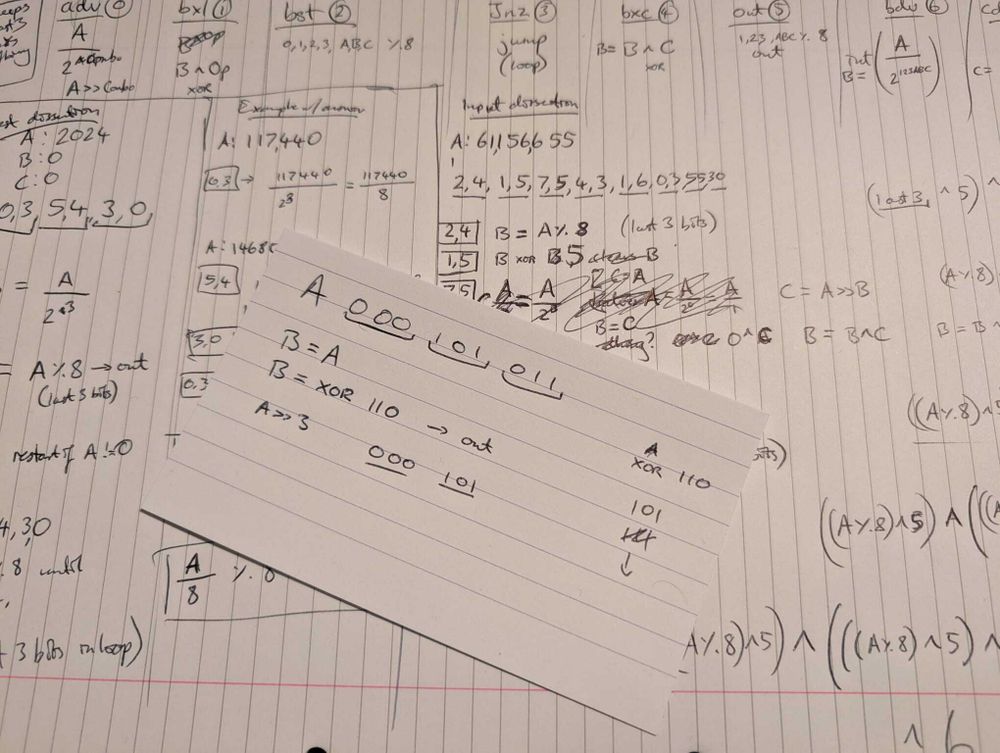 adv 0
bxl 1
bst 2
Jnz 3
bxc 4
out 5
bdv 6
A
2^Combo
A >> Combo
B ^ Op
XOR
0,1,2,3, ABC % 8
jump
(loop)
B = B ^ C
XOR
1,23, ABC % 8
out
int
B = (A / 2^123ABC)
C =
A: 2024
B: 0
C: 0
0,3, 5,4, 3,0,
= A / 2^3
A % 8 → out
(last 3 bits)
restart if A != 0
4,3,0
% 8 until
+ 3 bits in loop)
Example w/ answer
A: 117,440
0,3 → 117440 / 2^3 = 117440 / 8
5,4
3,0
0,3
A / 8 % 8
Input dissection
A: 61,156,655
2,4, 1,5, 7,5, 4,3, 1,6, 0,3, 5,5,3,0
2,4 B = A % 8 (last 3 bits)
1,5 B XOR 5
7,5
C = A >> B
B = B ^ C
B = B ^
B = C
(last 3, ^ 5) ^
(A % 8)
((A % 8) ^ 5
((A % 8) ^ 5) ^ ((A
A % 8) ^ 5) ^ (((A % 8) ^ 5) ^
^ 6
A 000 101 011
B = A
B = XOR 110 → out
A >> 3
000 101
A
XOR 110
101
↓